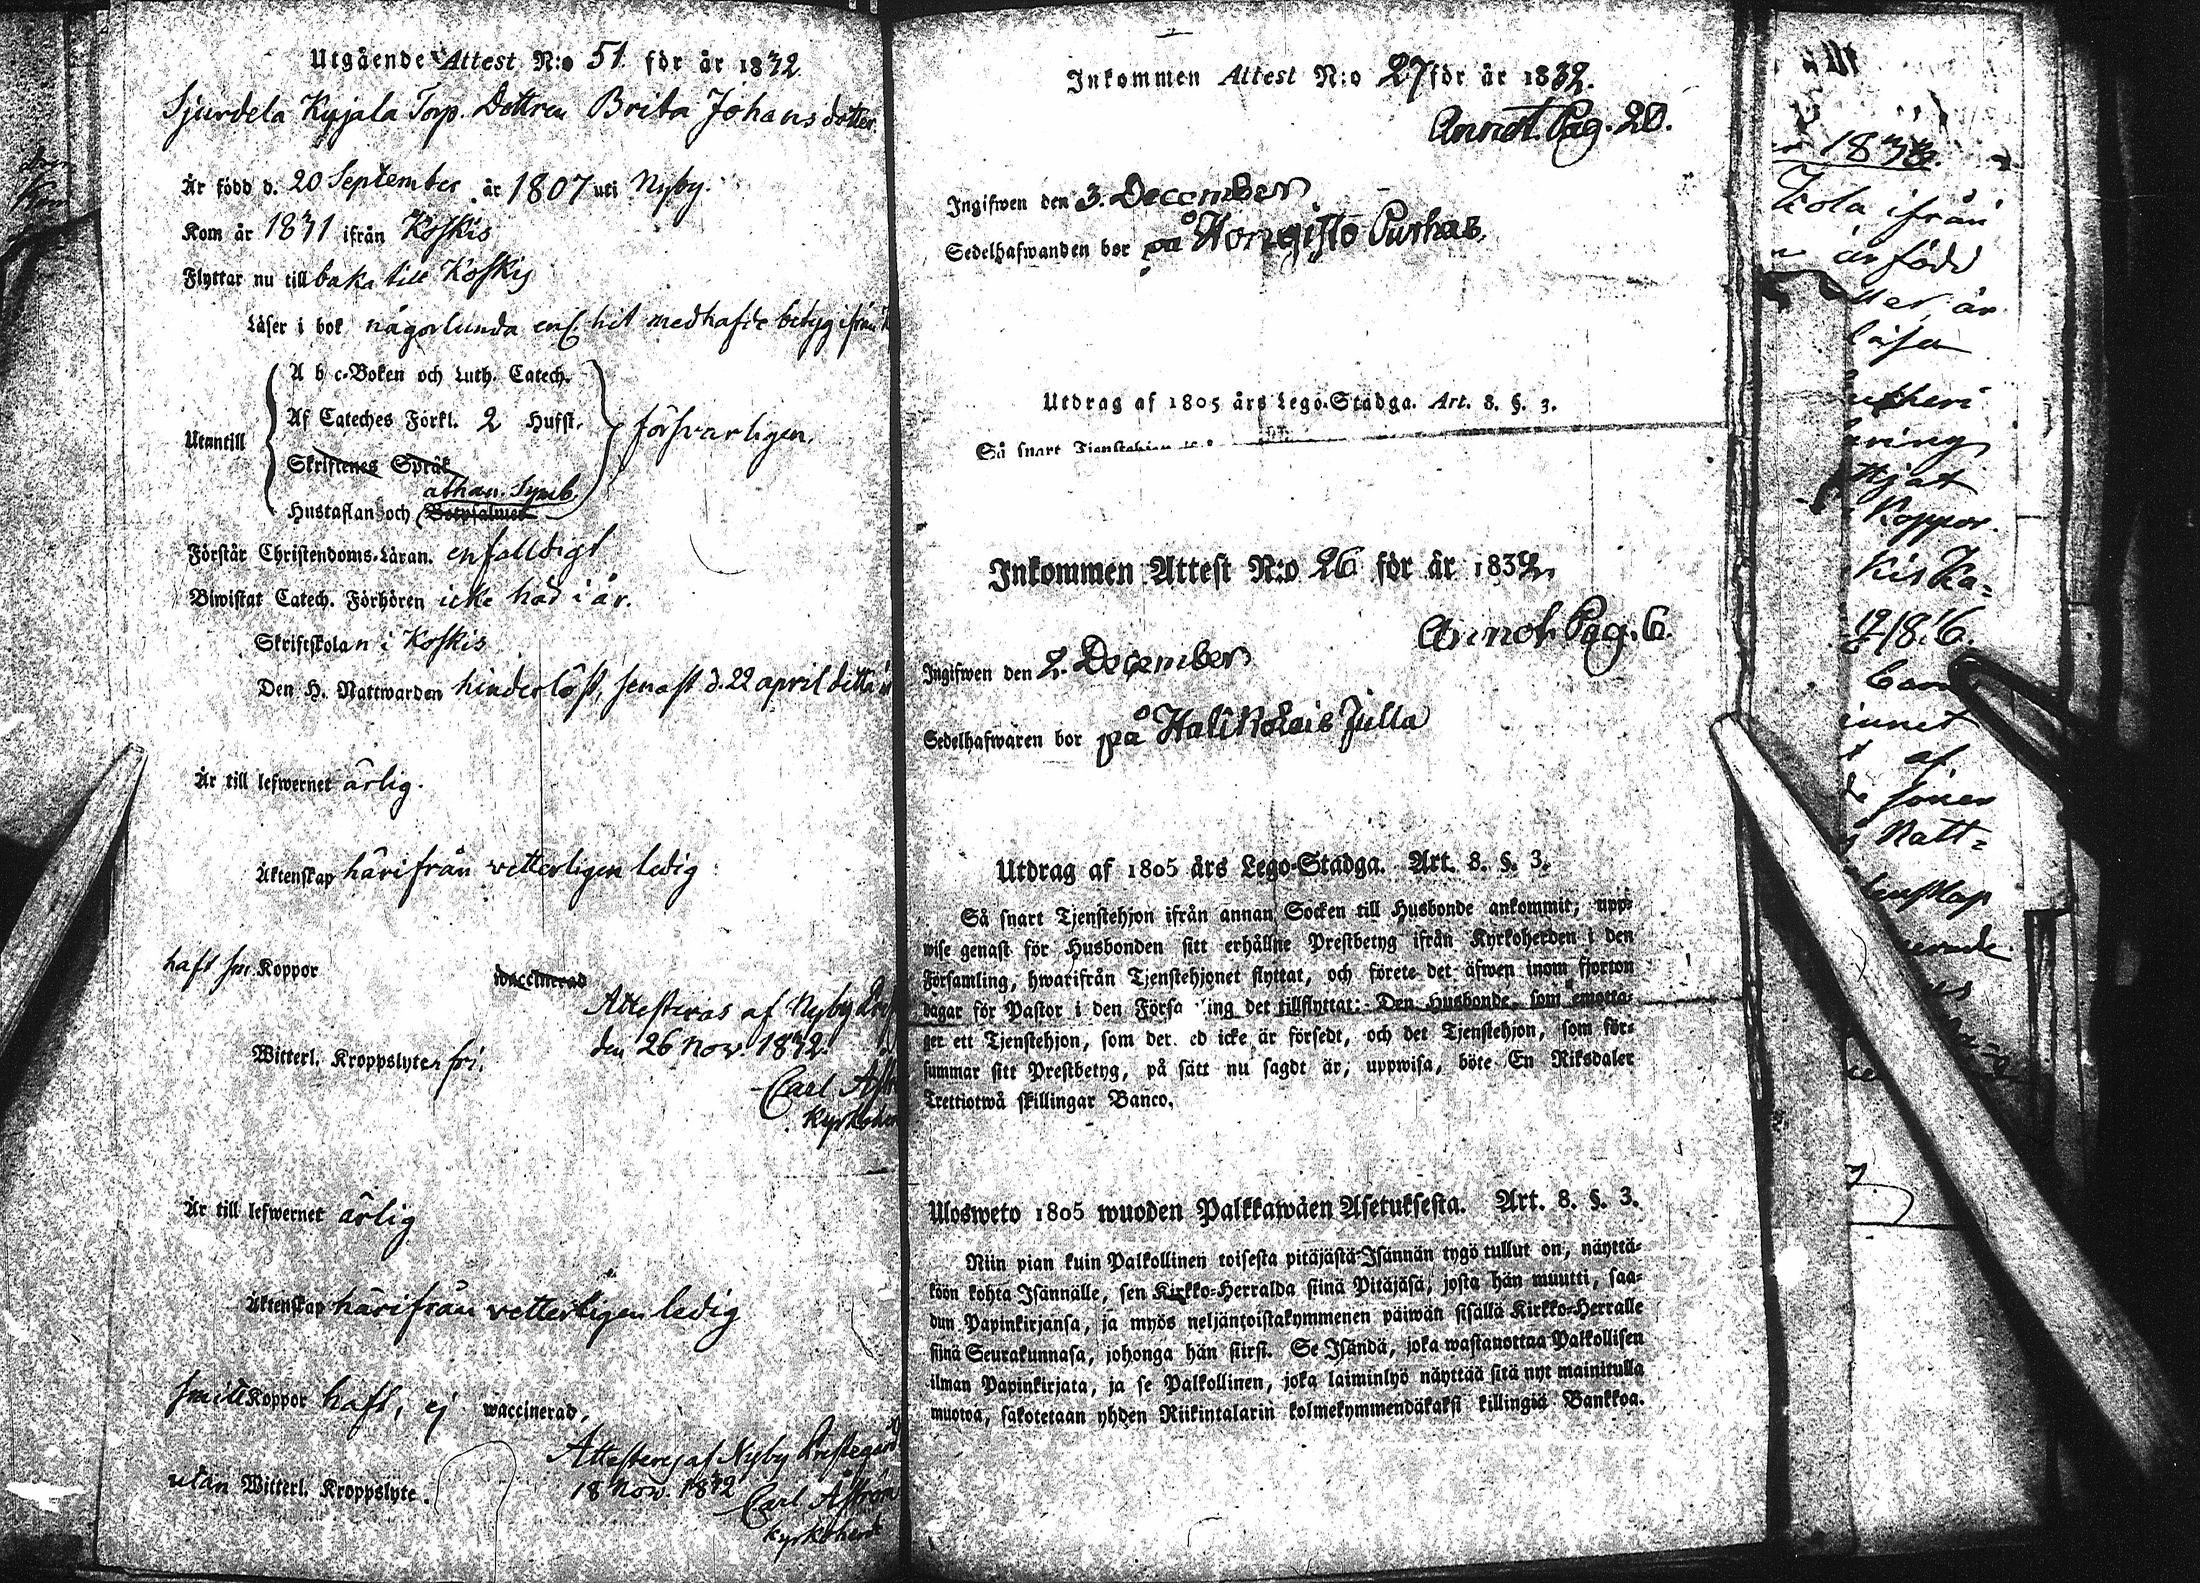 Utgående Attest N:o 51 för år 1832.
Sjurdela Kyjala Torp. Dottren Brita Johansdotter
Är född d. 20 September år 1807 uti Nyby.
Kom år 1831 ifrån Koskis
Flyttar nu tillbaka till Koskis
Läser i bok någorlunda enl. hit medhafde betyg ifrån
A b c-Boken och Luth. Catech.
Af Cateches Förkl. 2 Hufst.
Utantill
försvarligen.
Skriftenes Språk
athan. Symb.
Hustaflan och Botpsalmer
Förstår Christendoms-Läran. enfalldigt
Biwistat Catech. Förhören icke håd i år.
Skriftskolan i Koskis
Den H. Nattwarden hinderlöst, senast d. 22 april detta
Är till lefwernet ärlig.
Äktenskap härifrån vetterligen ledig
haft sm. Koppor waccinerad
Attesteras af Nyby
den 26 Nov. 1832.
Witterl. Kroppslyten fri.
Carl
Är till lefwernet ärlig
Äktenskap härifrån vetterligen ledig
smitt Koppor haft, ej waccinerad,
Attesteras af Nyby Prestegård
18 Nov. 1832
utan Witterl. Kroppslyte.
Carl Åström
Kyrkoherde
Inkommen Attest N:o 27 för år 1832.
Annot. Pag. 20.
Ingifwen den 3. December
Sedelhafwanden bor på Hongisto Purhas.
Utdrag af 1805 års Lego-Stadga. Art. 8. §. 3.
Så snart Tjenstehjon
Inkommen Attest N:o 26 för år 1832.
Annot. Pag. 6.
Ingifwen den 2. December
Sedelhafwaren bor på Halikkolais Julla
Utdrag af 1805 års Lego-Stadga. Art. 8. §. 3.
Så snart Tjenstehjon ifrån annan Socken till Husbonde ankommit, upp-
wise genast för Husbonden sitt erhållne Prestbetyg ifrån Kyrkoherden i den
Församling, hwarifrån Tjenstehjonet flyttat, och förete det äfwen inom fjorton
dagar för Pastor i den Försa ing det tillflyttat: Den Husbonde, som emotta-
ger ett Tjenstehjon, som der ed icke är försedt, och det Tjenstehjon, som för-
summar sitt Prestbetyg, på sätt nu sagdt är, uppwisa, böte En Riksdaler
Trettiotwå skillingar Banco.
Ulosweto 1805 wuoden Palkkawäen Asetuksesta. Art. 8. §. 3.
Niin pian kuin Palkollinen toisesta pitäjästä Isännän tygö tullut on, näyttä-
köön kohta Isännälle, sen Kirkko-Herralda siinä Pitäjäsä, josta hän muutti, saa-
dun Papinkirjansa, ja myös neljäntoistakymmenen päiwän sisällä Kirkko-Herralle
siinä Seurakunnasa, johonga hän siirsi. Se Isändä, joka wastanottaa Palkollisen
ilman Papinkirjata, ja se Palkollinen, joka laiminlyö näyttää sitä nyt mainitulla
muotoa, sakotetaan yhden Riikintalarin kolmekymmendäkaksi killingiä Bankkoa.
1833.
ifrån
är född
är
läsa
Koppor.
sones
Natt-